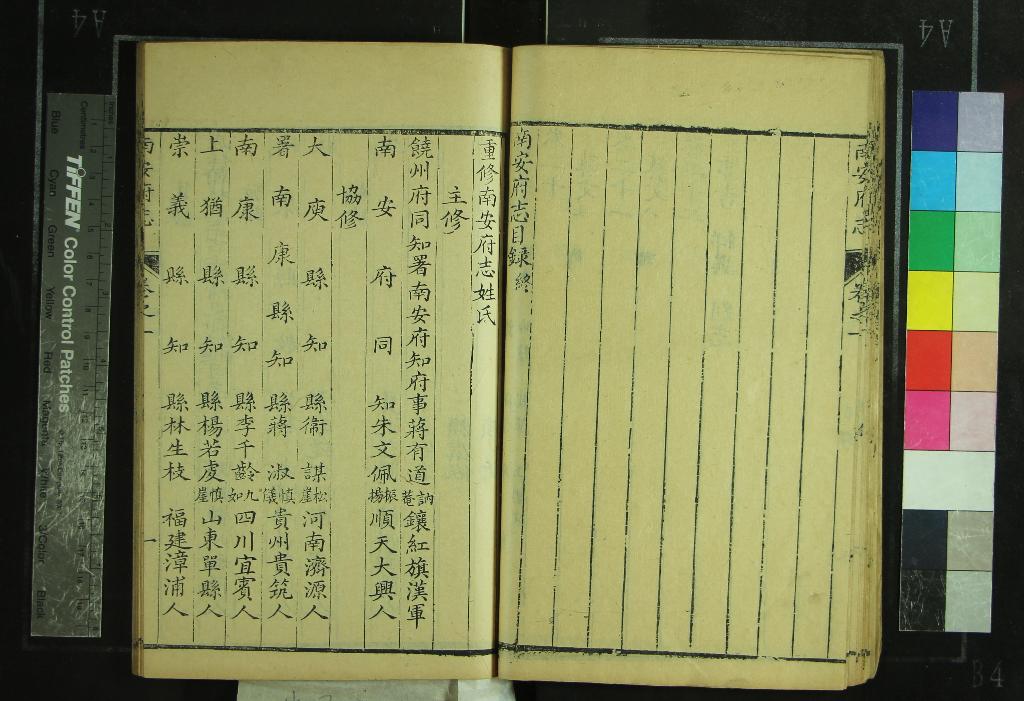 南安府志
卷之一
南安府志目錄終
重修南安府志姓氏
主修
饒州府同知署南安府知府事蔣有道訥菴鑲紅旗漢軍
南安府同知朱文佩振揚順天大興人
協修
大庾縣知縣衞謀松崖河南濟源人
署南康縣知縣蔣淑慎儀貴州貴筑人
南康縣知縣李千齡九如四川宜賓人
上猶縣知縣楊若虔慎崖山東單縣人
崇義縣知縣林生枝福建漳浦人
南安府志
卷之一
一
TIFFEN Color Control Patches
Blue
Cyan
Green
Yellow
Red
Magenta
White
3/Color
Black
Centimetres
Inches
A4
A4
B4